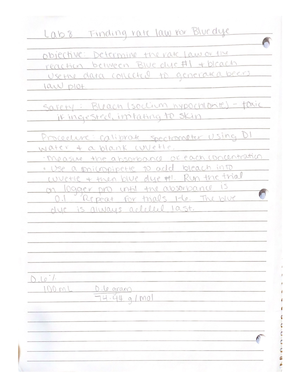 Lab 8 Finding rate law for Blue dye
objective: Determine the rate law of the
reaction between Blue dye #1 & bleach
using data collected to generate a beers
law plot.
Safety: Bleach (sodium hypochlorite) - toxic
if ingested, irritating to skin
Procedure: calibrate spectrometer using DI
water & a blank cuvette
Measure the absorbance of each concentration
• Use a micropipette to add bleach into
cuvette & then blue dye #1. Run the trial
on logger pro until the absorbance is
0.1 Repeat for trials The blue
dye is always added last.
100mL 0.6 grams
74.44 g/mol